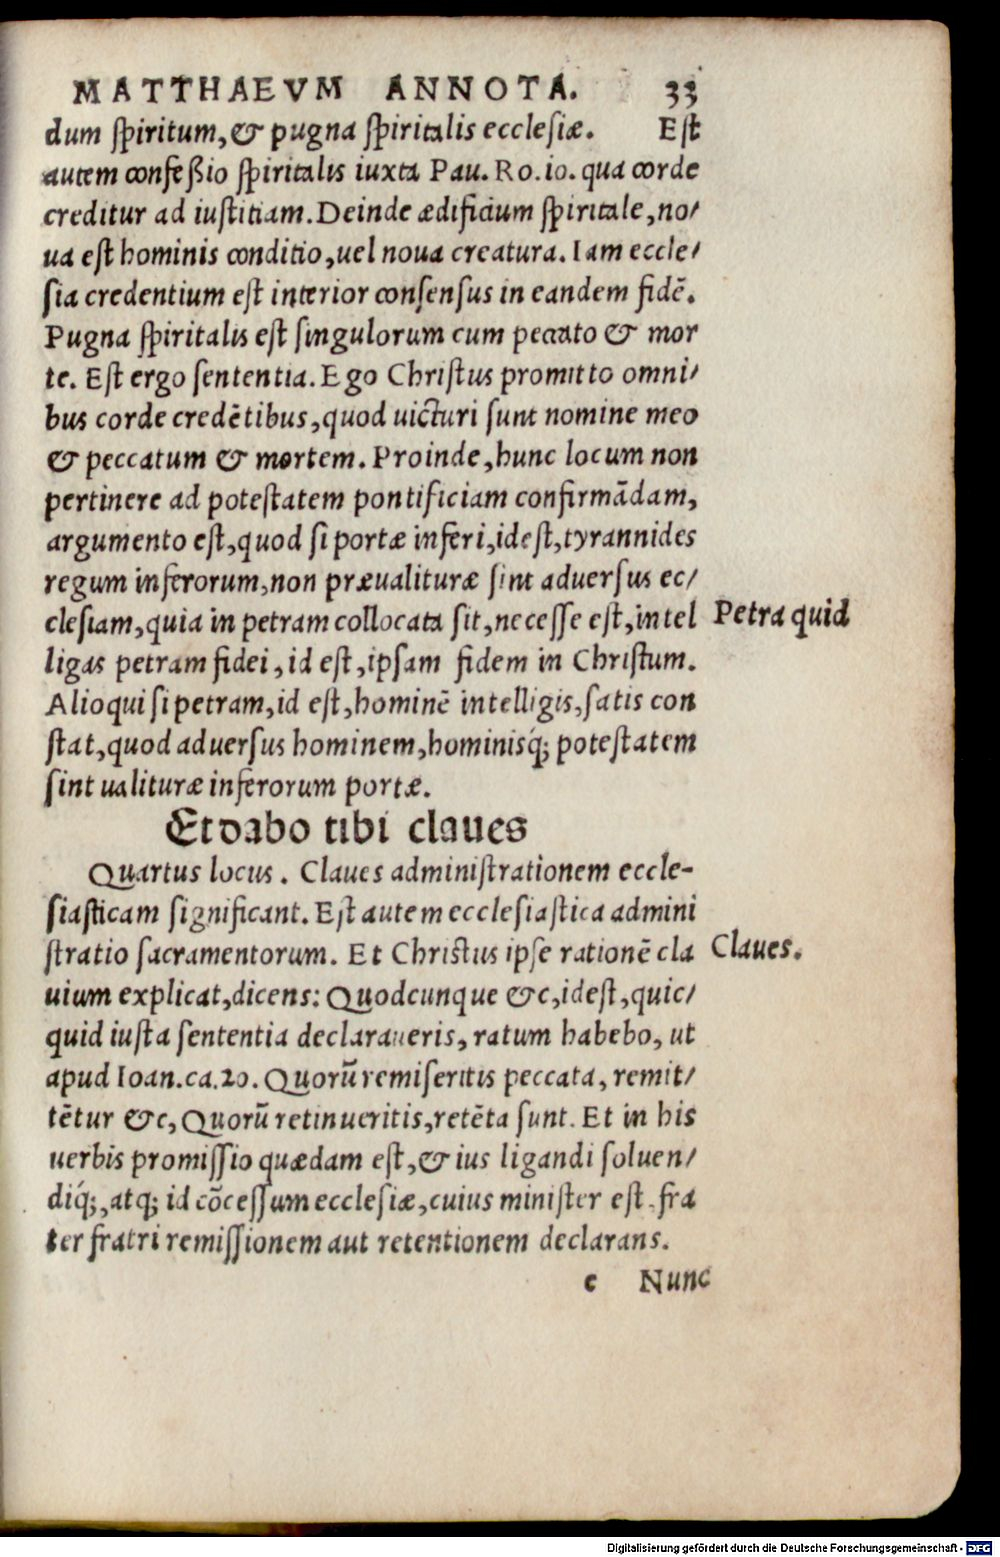 MATTHAEVM ANNOTA. 33
dum ſpiritum, & pugna ſpiritalis eccleſiæ. Eſt
autem confeßio ſpiritalis iuxta Pau. Ro. 10. qua corde
creditur ad iuſtitiam. Deinde ædificium ſpiritale, no/
ua eſt hominis conditio, uel noua creatura. Iam eccle/
ſia credentium eſt interior conſenſus in eandem fidē.
Pugna ſpiritalis eſt ſingulorum cum peccato & mor
te. Eſt ergo ſententia. Ego Chriſtus promitto omni/
bus corde credētibus, quod uicturi ſunt nomine meo
& peccatum & mortem. Proinde, hunc locum non
pertinere ad poteſtatem pontificiam confirmādam,
argumento eſt, quod ſi portæ inferi, id eſt, tyrannides
regum inferorum, non præualituræ ſint aduerſus ec/
cleſiam, quia in petram collocata ſit, neceſſe eſt, intel
Petra quid
ligas petram fidei, id eſt, ipſam fidem in Chriſtum.
Alioqui ſi petram, id eſt, hominē intelligis, ſatis con
ſtat, quod aduerſus hominem, hominisq́; poteſtatem
ſint ualituræ inferorum portæ.
Et dabo tibi claues
Quartus locus. Claues adminiſtrationem eccle-
ſiaſticam ſignificant. Eſt autem eccleſiaſtica admini
ſtratio ſacramentorum. Et Chriſtus ipſe rationē cla
Claues.
uium explicat, dicens: Quodcunque &c, id eſt, quic/
quid iuſta ſententia declaraueris, ratum habebo, ut
apud Ioan. ca. 20. Quorū remiſeritis peccata, remit/
tētur &c, Quorū retinueritis, retēta ſunt. Et in his
uerbis promiſſio quædam eſt, & ius ligandi ſoluen/
diq́;, atq; id cōceſſum eccleſiæ, cuius miniſter eſt fra
ter fratri remiſſionem aut retentionem declarans.
c Nunc
Digitalisierung gefördert durch die Deutsche Forschungsgemeinschaft - DFG